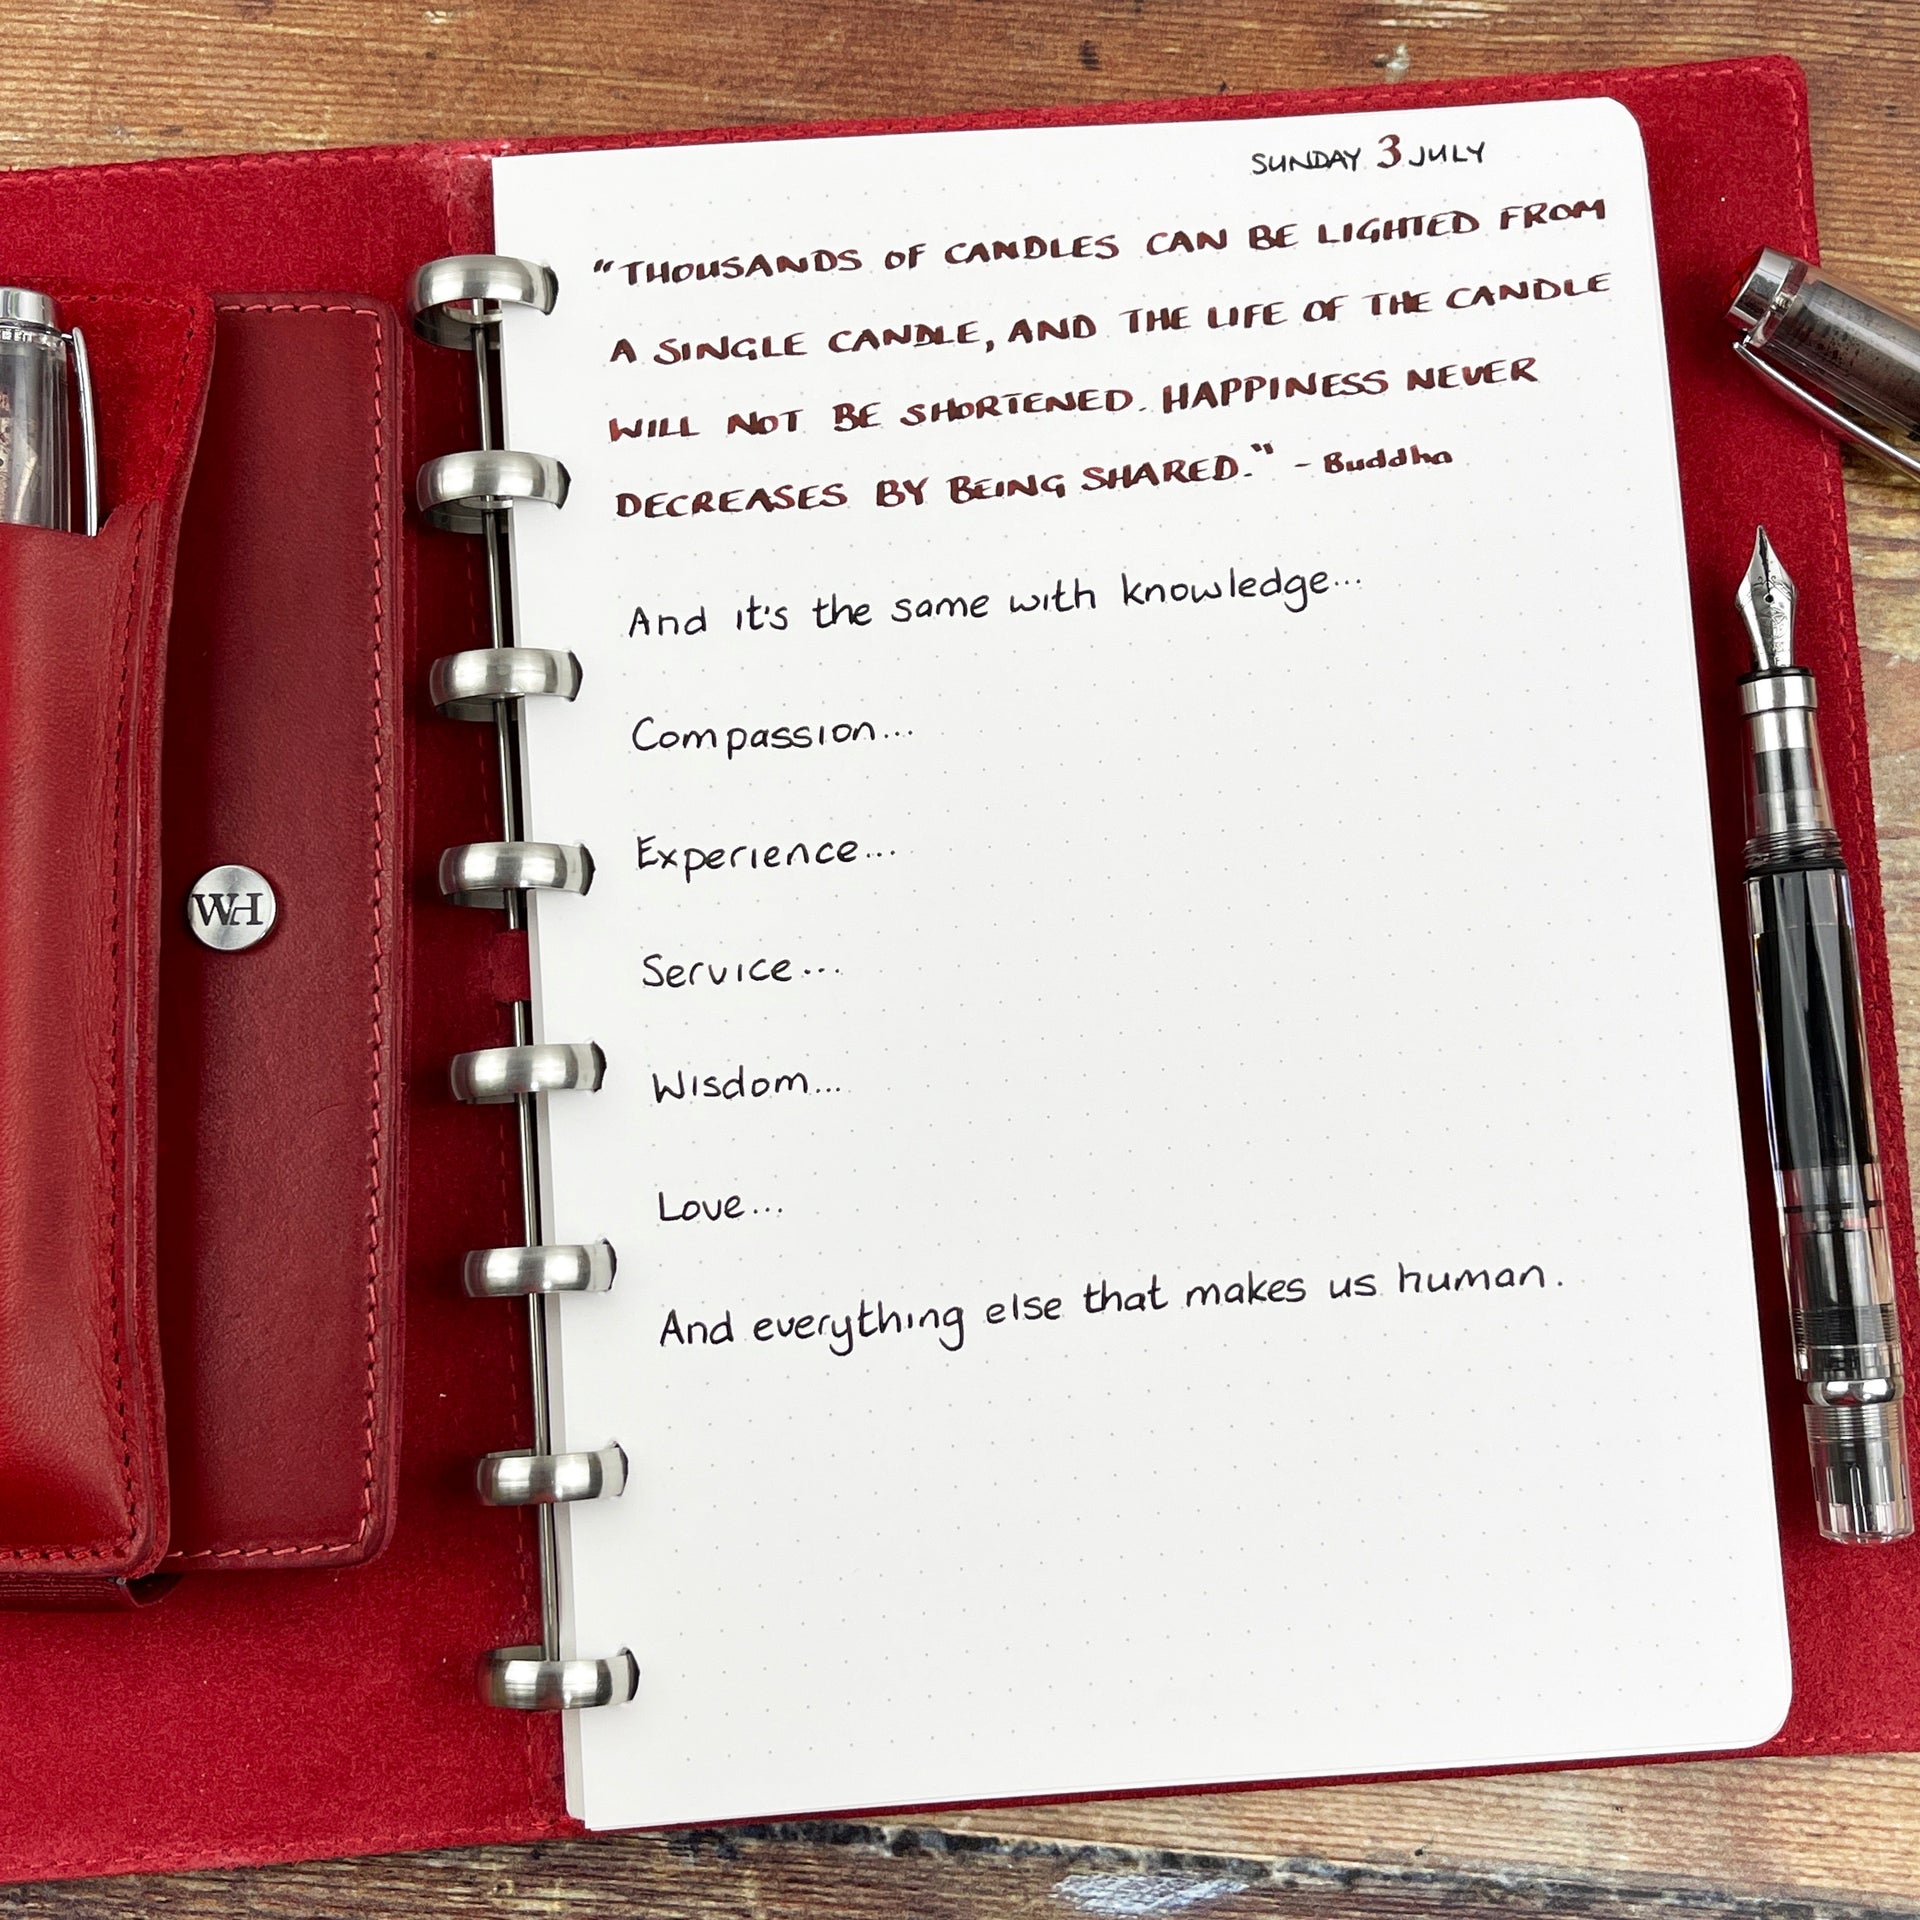 SUNDAY 3 JULY
"THOUSANDS OF CANDLES CAN BE LIGHTED FROM
A SINGLE CANDLE, AND THE LIFE OF THE CANDLE
WILL NOT BE SHORTENED. HAPPINESS NEVER
DECREASES BY BEING SHARED." - Buddha
And it's the same with knowledge...
Compassion...
Experience...
Service...
Wisdom...
Love...
And everything else that makes us human.
WH